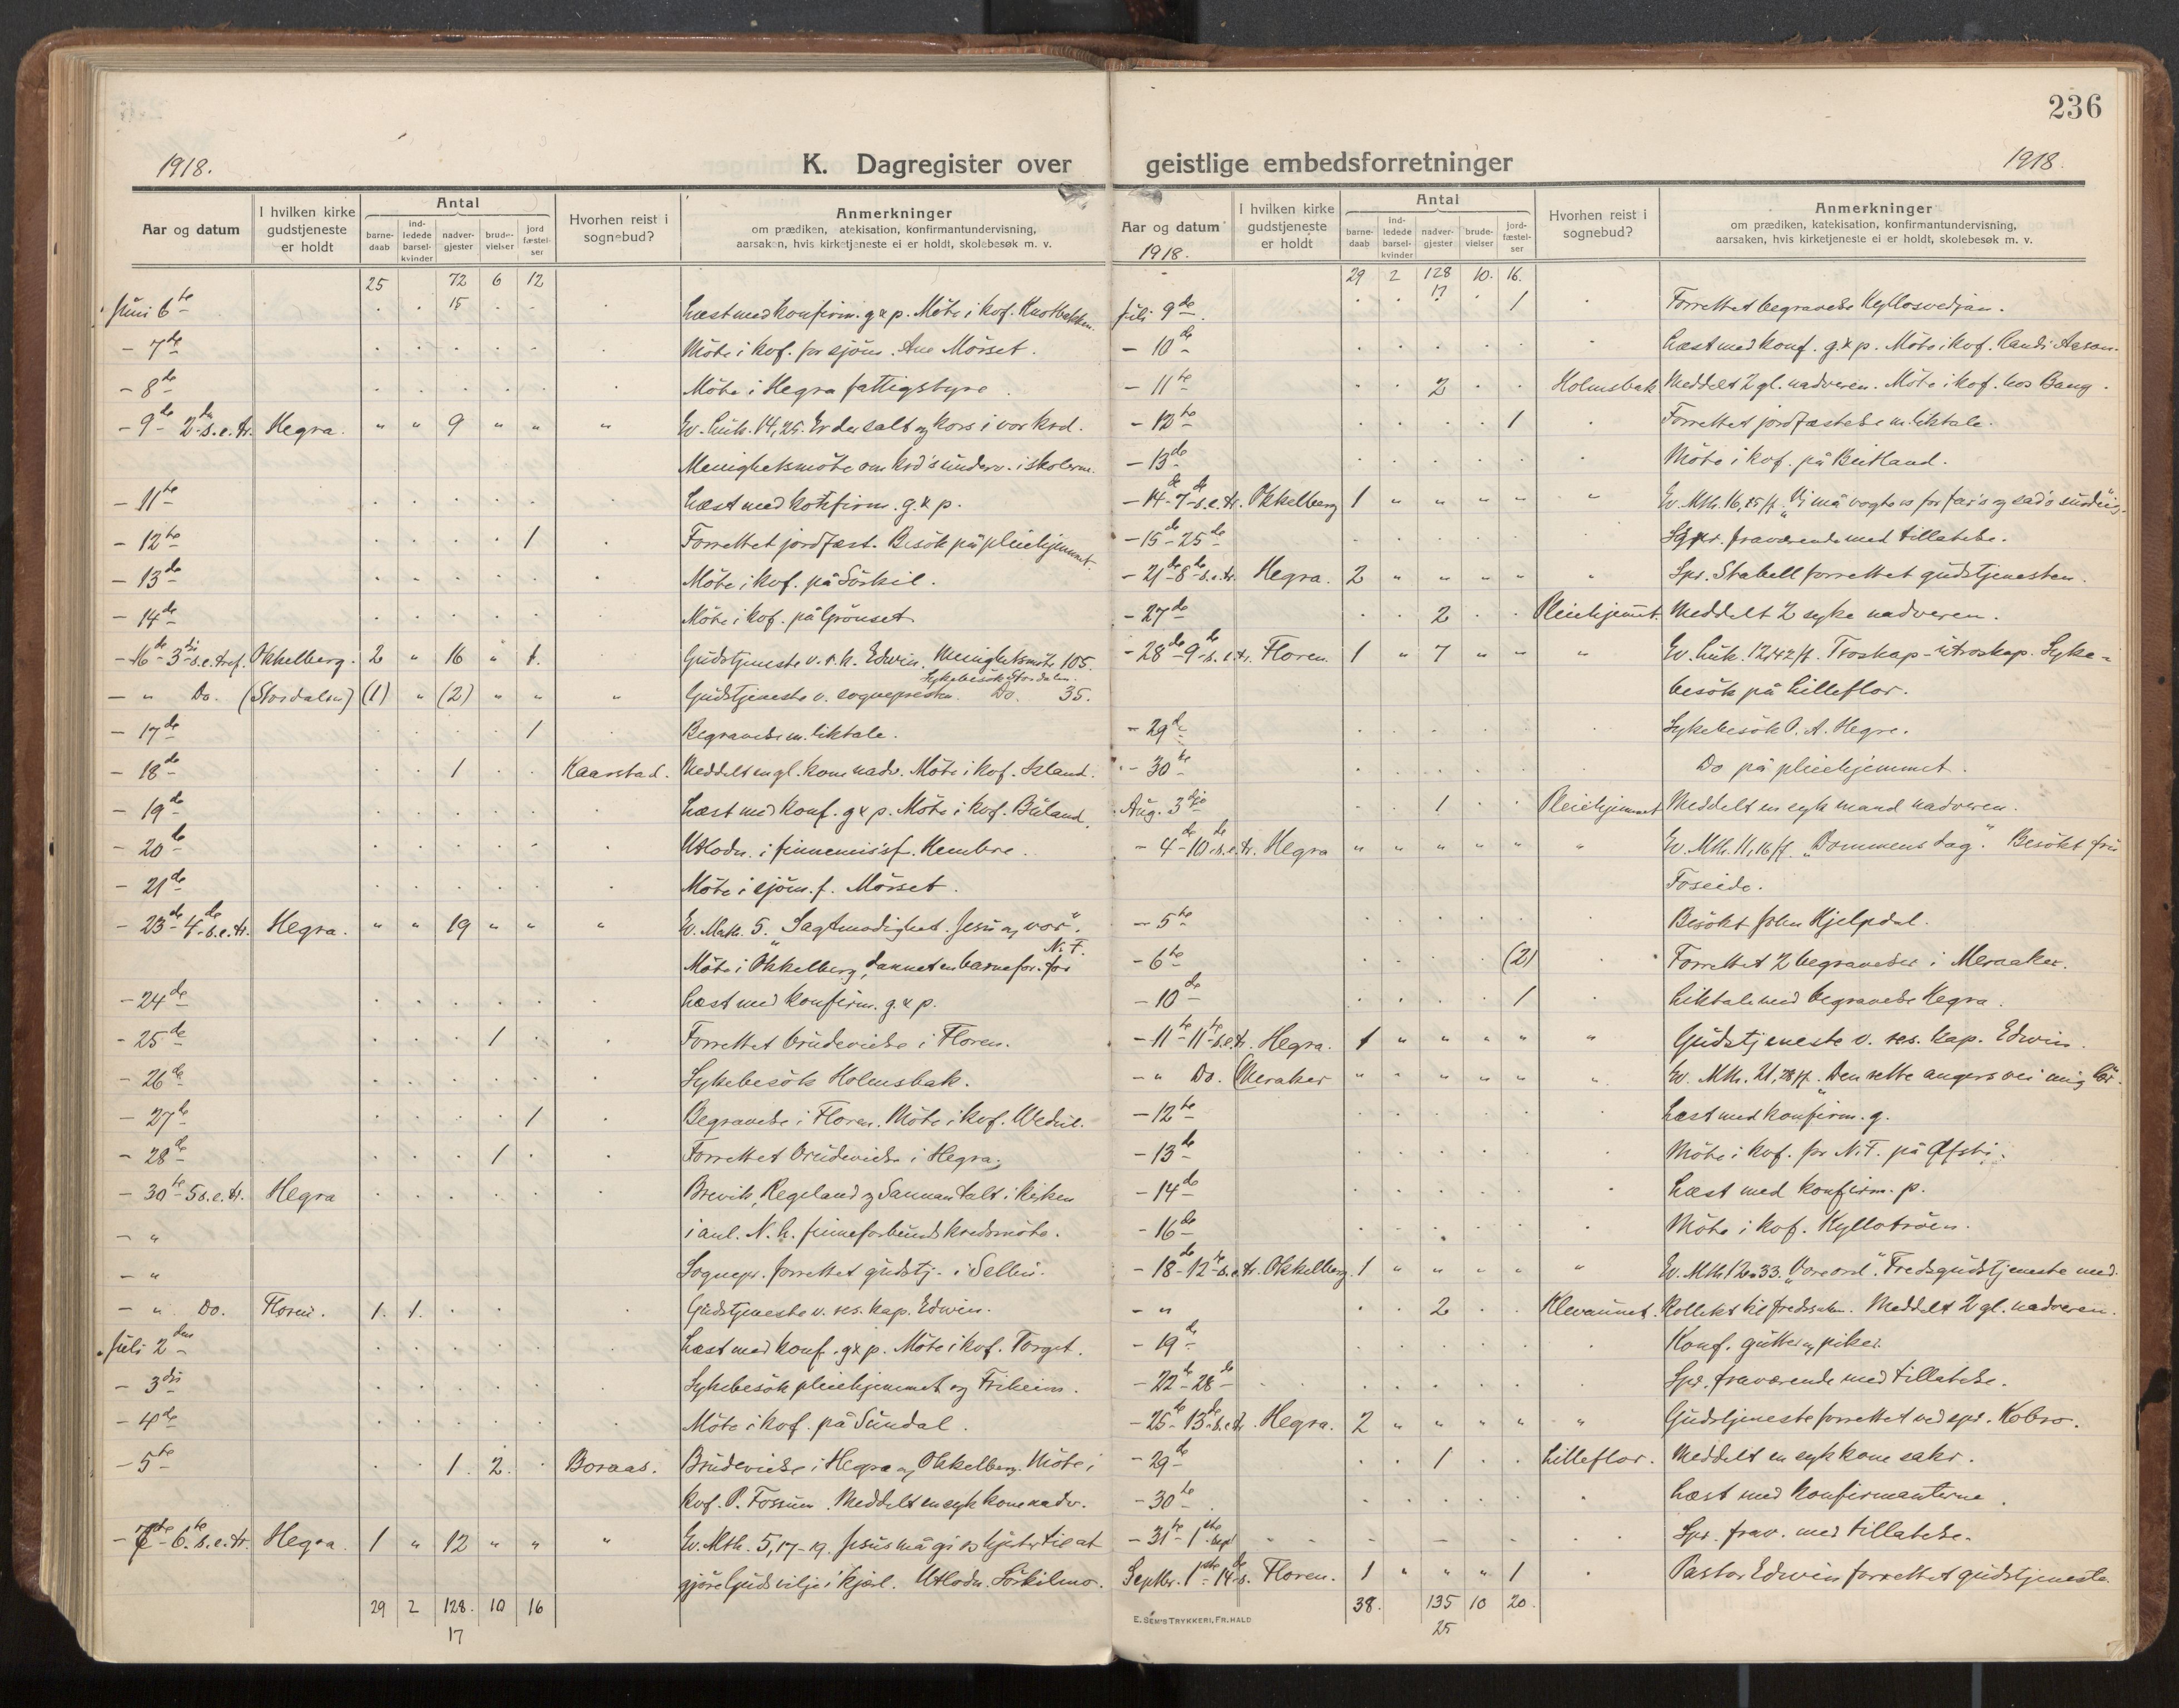 236
1918.
K. Dagregister over geistlige embedsforretninger
1918.
Aar og datum
I hvilken kirke gudstjeneste er holdt
Antal
barne-daab
ind-ledede barsel-kvinder
nadver-gjester
brude-vielser
jord fæstel-ser
Hvorhen reist i sognebud?
Anmerkninger
om prædiken, katekisation, konfirmantundervisning,
aarsaken, hvis kirketjeneste ei er holdt, skolebesøk m. v.
25 72 6 12
Juni 6te . . 15 . . . Læst med konfirm. g & p. Møte i kvf.
- 7de . . . . . . Møte i kvf. for sjøm. Ane Mørset.
- 8de . . . . . . Møte i Hegra fattigstyre.
- 9de 2den s.e.tr. Hegra. " " 9 " " " Ev. Luk. 14,25. Er der salt og kors i vor krd.
Menighetsmøte om krd's underv. i skolerne.
- 11te . . . . . . Læst med konfirm. g & p.
- 12te . . . . 1 . Forrettet jordfæst. Besøk på pleiehjemmet.
- 13de . . . . . . Møte i kvf. på Sørkil.
- 14de . . . . . . Møte i kvf. på Grønset.
- 16de 3die s.e.tref. Okkelberg. 2 " 16 " 1. Gudstjeneste v. r. k. Edwin. Menighetsmøte 105.
Sykebesøk Stordalen.
- " Do. (Stordalen) (1) " (2) " " " Gudstjeneste v. sognepresten. Do. 35.
- 17de . . . . 1 . Begravelse m. liktale.
- 18de . . 1 . . Kaarstad. Meddelt en gl. kone nadv. Møte i kvf.
- 19de . . . . . . Læst med konf. g & p. Møte i kvf. Buland.
- 20de . . . . . . Utlodn. i finnemis'sf. Kembre.
- 21de . . . . . . Møte i sjøm. f. Mørset.
- 23de 4de s.e.tr. Hegra. " " 19 " " " Ev. Mark. 5. "Sagtmodighet. Jesu og vor".
Møte i Okkelberg, dannet en barnefor. for N. F.
- 24de . . . . . . Læst med konfirm. g & p.
- 25de . . . 1 . . Forrettet brudevielse i Floren.
- 26de . . . . . . Sykebesøk Holmsbak.
- 27de . . . . 1 . Begravelse i Floren. Møte i kvf. Wedul.
- 28de . . . 1 . . Forrettet brudevielse i Hegra.
- 30te 5 s.e.tr. Hegra . . . . . . Brevik, Regeland og Sannan talt i kirken
- " i anl. N. h. finneforbunds kredsmøte.
- " Sognepr. forrettet gudstj. i Selbu.
- " Do. Floren. 1. 1. . . . . Gudstjeneste v. res. kap. Edwin.
Juli 2den . . . . . . Læst med konf. g & p. Møte i kvf. Torget.
- 3die . . . . . . Sykebesøk pleiehjemmet og Friheim.
- 4de . . . . . . Møte i kvf. på Sundal.
- 5te . . 1. 2. . Boraas. Brudevielse i Hegra og Okkelberg. Møte i
kvf. P. Fossum. Meddelt en syk kone nadv.
- 7de 6te s.e.tr. Hegra. 1 " 12 " " " Ev. Mth. 5,17-19. Jesus må gi os hjerte til at
gjøre Guds vilje i kjærl. Utlodn. Sørkilmo.
29 2 128. 10 16
17
Aar og datum
1918.
I hvilken kirke gudstjeneste er holdt
Antal
barne-daab
ind-ledede barsel-kvinder
nadver-gjester
brude-vielser
jord-fæstel-ser
Hvorhen reist i sognebud?
Anmerkninger
om prædiken, katekisation, konfirmantundervisning,
aarsaken, hvis kirketjeneste ei er holdt, skolebesøk m. v.
29 2 128 10. 16.
17
Juli 9de . . . . 1 . Forrettet begravelse Kyllosvedjan.
- 10de . . . . . . Læst med konf. g. & p. Møte i kvf.
- 11te . . 2 . . Holmsbak Meddelt 2 gl. nadveren. Møte i kvf. hos Bang.
- 12te . . . . 1 . Forrettet jordfæstelse m. liktale.
- 13de . . . . . . Møte i kvf. på Beitland.
- 14de 7de s.e.tr. Okkelberg 1 " " " " " Ev. Mth. 16, ff. "Vi må vogte os for
- 15-25de . . . . . . Sgpr. fraværende med tillatelse.
- 21de 8de s.e.tr. Hegra. 2 " " " " " Spr. Stabell forrettet gudstjenesten.
- 27de . . 2 . . Pleiehjemmet. Meddelt 2 syke nadveren.
- 28de 9de s.e.tr. Floren. 1 " 7 " " " Ev. Luk. 12,42 ff. Troskap - utroskap. Syke-
besøk på Lilleflor.
- 29de . . . . . . Sykebesøk P. A. Hegre.
- 30te . . . . . . Do på pleiehjemmet.
Aug. 3dje . . 1 . . Pleiehjemmet Meddelt en syk mand nadveren.
- 4de 10de s.e.tr. Hegra " " " " " " Ev. Mth. 11,16 ff. "Dommens dag". Besøkt fru
Foseide.
- 5te . . . . . . Besøkt John Hjelpdal.
- 6te . . . . (2) . Forrettet 2 begravelser i Meraaker.
- 10de . . . . 1 . Liktale med begravelse Hegra.
- 11te 11te s.e.tr. Hegra. 1 " " " " " Gudstjeneste v. res. kap. Edwin.
- " Do. (Meraker " " " " " " Ev. Mth. 21,28 ff. "Den rette angers vei mig lær".
- 12te . . . . . . Læst med konfirm. g.
- 13de . . . . . . Møte i kvf. for N. F. på Øfsti.
- 14de . . . . . . Læst med konfirm. p.
- 16de . . . . . . Møte i kvf. Kyllotrøen.
- 18de 12te s.e.tr. Okkelberg. 1 " " " " " Ev. Mth. 12, 33. "Vore ord". Fredsgudstjeneste med
- " . . 2 . . Klevaunet. Kollekt til fredssaken. Meddelt 2 gl. nadveren.
- 19de . . . . . . Konf. gutter og piker.
- 22de-28de . . . . . . Spr. fraværende med tillatelse.
- 25de 13de s.e.tr. Hegra. 2 " " " " " Gudstjeneste forrettet ved spr. Kobro.
- 29de . . 1 . . Lilleflor. Meddelt en syk kone sakr.
- 30te . . . . . . Læst med konfirmanterne.
- 31te - 1ste sept - - - - - - Spr. frav. med tillatelse.
Septbr. 1ste 14de s. Floren. 1 " " " 1 . Pastor Edwin forrettet gudstjeneste.
38. 135 10 20.
25
E. SEM'S TRYKKERI, FR.HALD